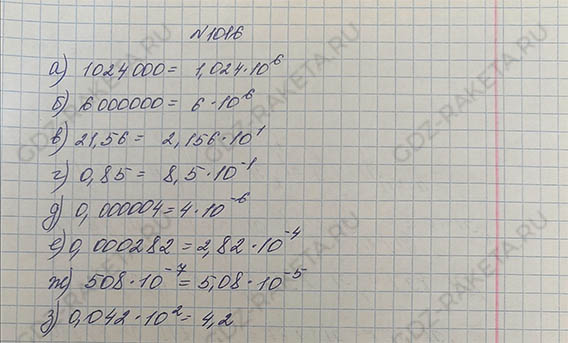 №1016
а) 1024000 = 1,024·10⁶
б) 6000000 = 6·10⁶
в) 21,56 = 2,156·10¹
г) 0,85 = 8,5·10⁻¹
д) 0,000004 = 4·10⁻⁶
е) 0,000282 = 2,82·10⁻⁴
ж) 508·10⁻⁷ = 5,08·10⁻⁵
з) 0,042·10² = 4,2
GDZ-RAKETA.RU
GDZ-RAKETA.RU
GDZ-RAKETA.RU
GDZ-RAKETA.RU
GDZ-RAKETA.RU
GDZ-RAKETA.RU